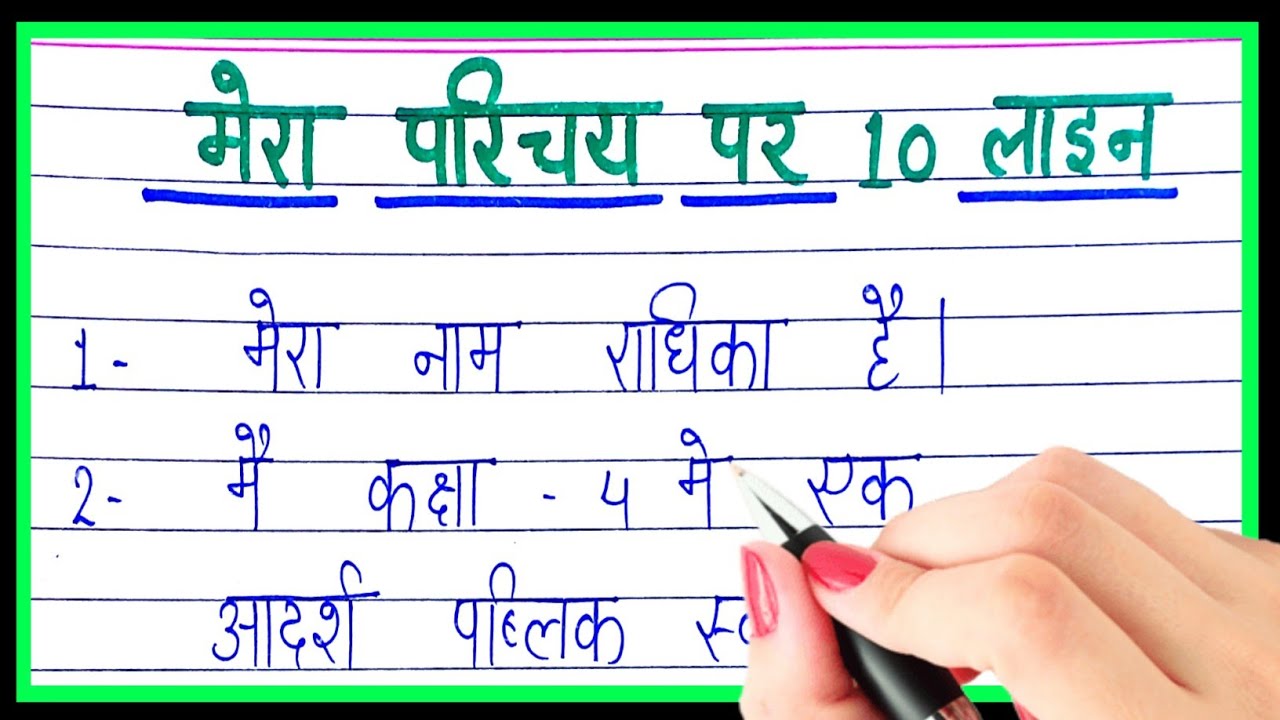 मेरा परिचय पर 10 लाइन
1- मेरा नाम राधिका है।
2- मै कक्षा - 4 मे एक
आदर्श पब्लिक